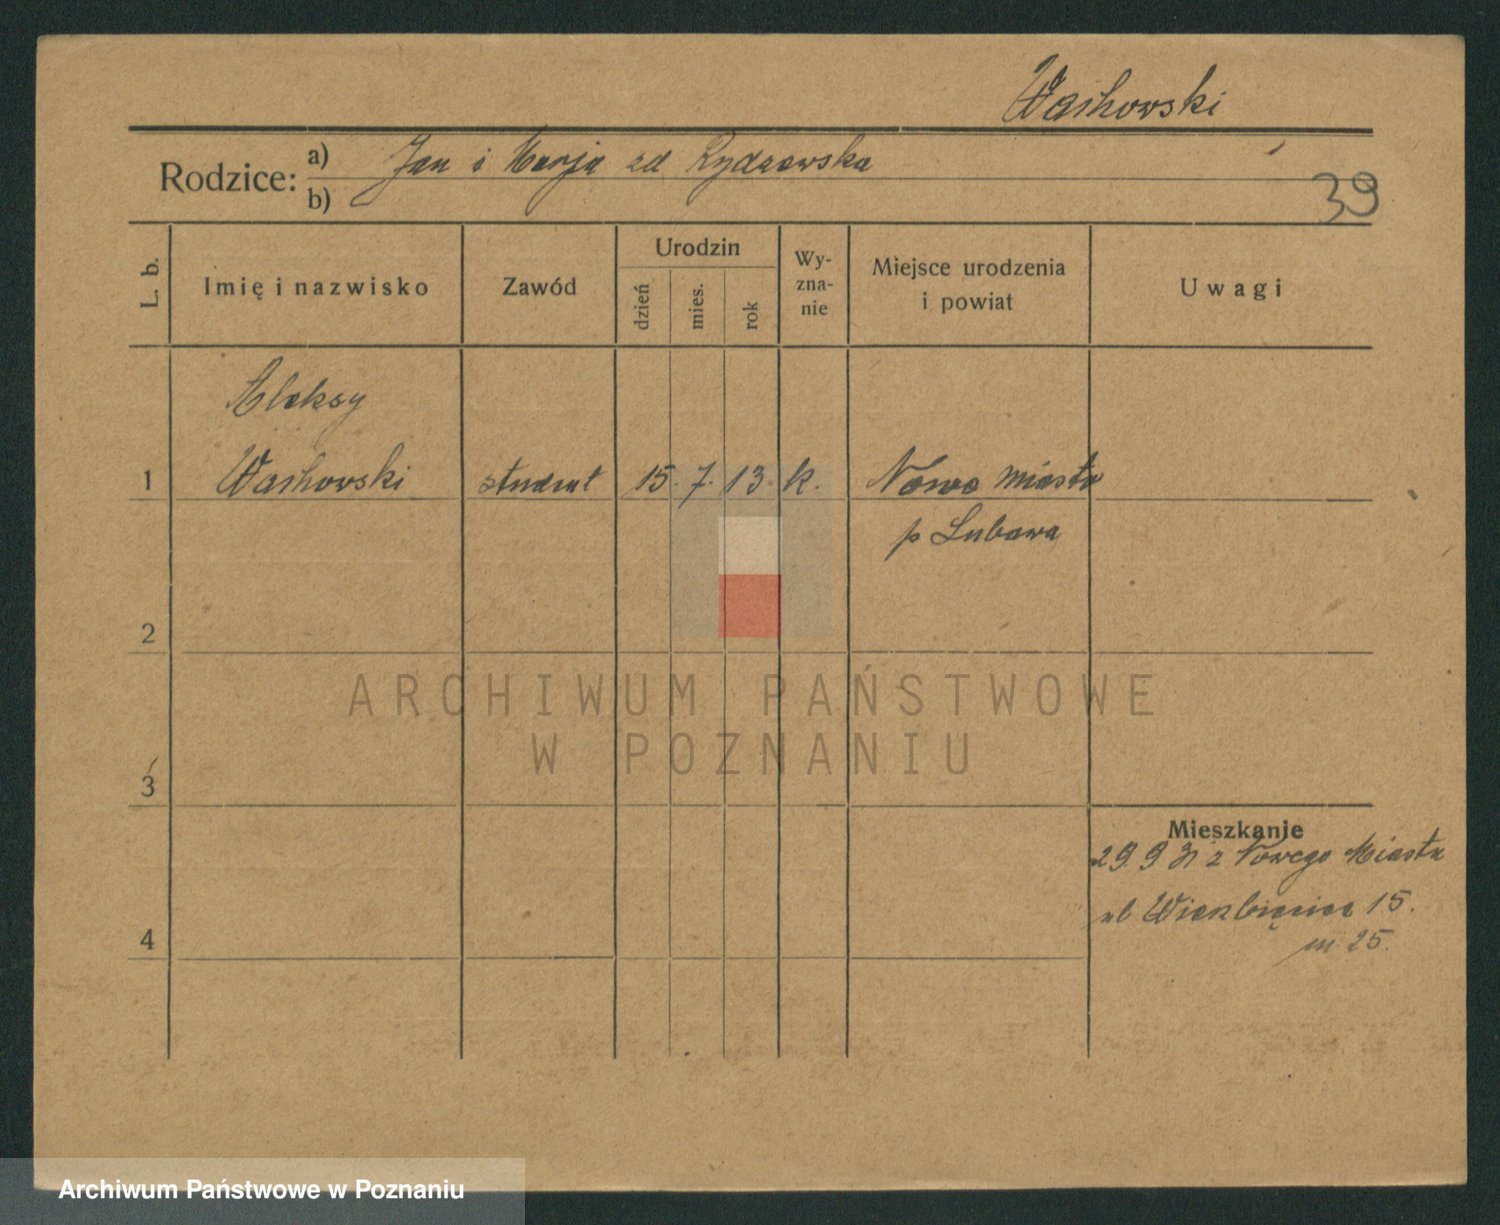 Washowski
Rodzice: a) Jan i Marja zd Rydzewska
b)
39
L. b.
Imię i nazwisko
Zawód
Urodzin
dzień
mies.
rok
Wy-
zna-
nie
Miejsce urodzenia
i powiat
Uwagi
Aleksy
1 Washowski student 15. 7. 13. k. Nowe miasto
p Lubawa
2
3
4
ARCHIWUM PAŃSTWOWE
W POZNANIU
Mieszkanie
29. 9 31 z Nowego Miasta
ul Wierzbięcice 15.
m 25.
Archiwum Państwowe w Poznaniu